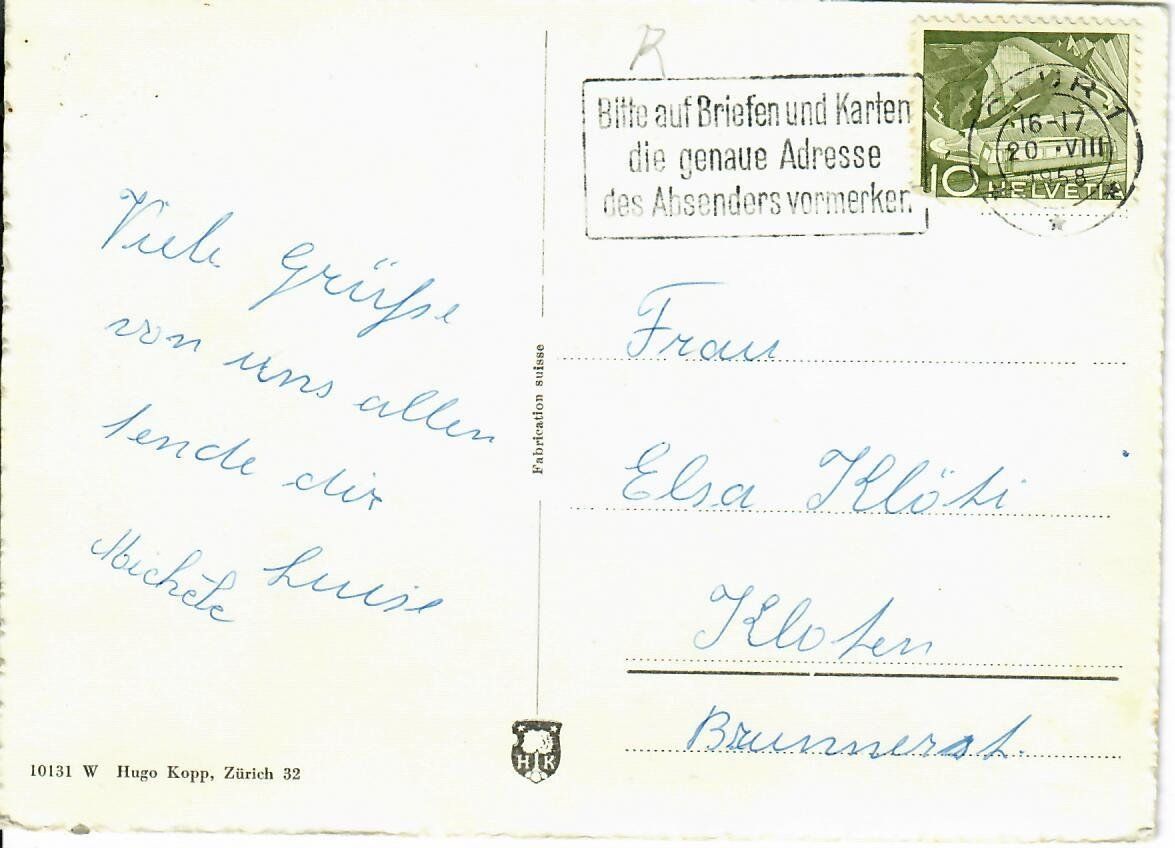 R
Bitte auf Briefen und Karten
die genaue Adresse
des Absenders vormerken
16-17
20.VIII
1958
10 HELVETIA
Viele Grüße
von uns allen
sende dir
Luise
Michèle
Fabrication suisse
Frau
Elsa Klöti
Kloten
Brunnerst.
H K
10131 W Hugo Kopp, Zürich 32